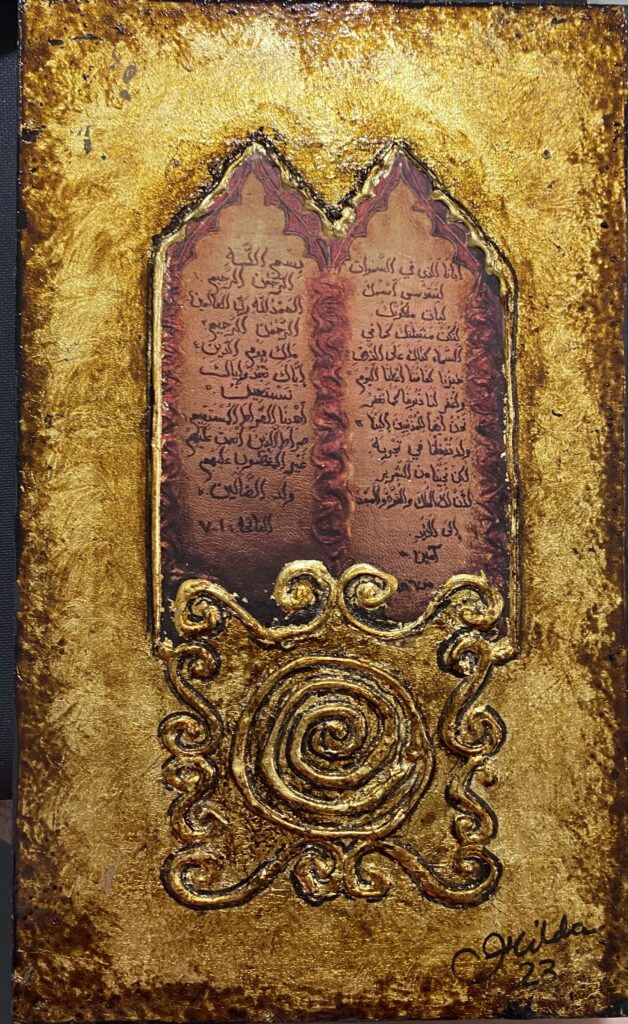 بسم الله
الرحمن الرحيم
الحمد لله ربّ العالمين
الرحمن الرحيم
ملك يوم الدين
إيّاك نعبد وإيّاك
نستعين
أهدنا الصّراط المستقيم
صراط الذين أنعمت عليهم
غير المغضوب عليهم
ولا الضّالين
الفاتحة ١-٧
أبانا الذي في السّموات
ليتقدس أسمك
ليأت ملكوتك
لتكن مشيئتك كما في
السماء كذلك على الأرض
خبزنا كفافنا أعطنا اليوم
وأغفر لنا ذنوبنا كما نغفر
نحن أيضا للمذنبين إلينا
ولا تدخلنا في تجربة
لكن نجّنا من الشرير
لأن لك الملك والقوّة والمجد
إلى الأبد
آمين
Hilda
23